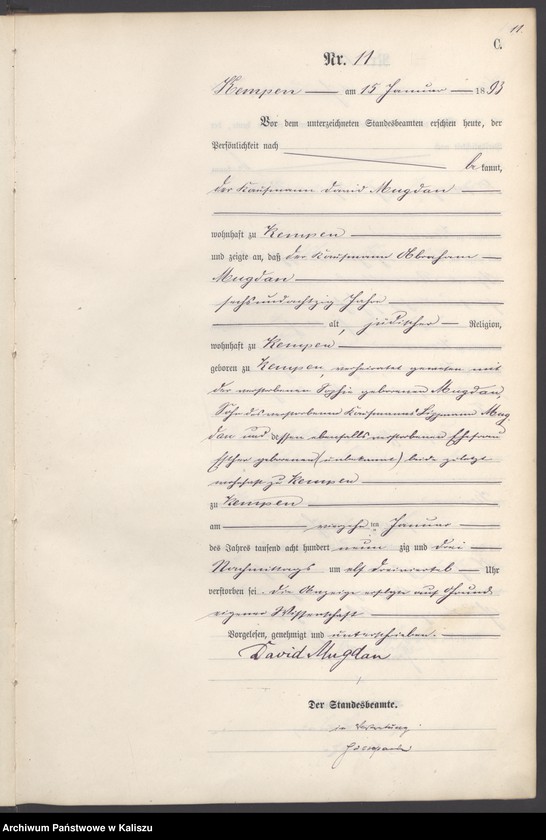 11.
C.
Nr. 11
Kempen am 15 Januar 1893
Vor dem unterzeichneten Standesbeamten erschien heute, der
Persönlichkeit nach
bekannt,
der Kaufmann David Mugdan
wohnhaft zu Kempen
und zeigte an, daß der Kaufmann Abraham
Mugdan
sechsundachtzig Jahre
alt, jüdischer Religion,
wohnhaft zu Kempen
geboren zu Kempen, verheiratet gewesen mit
der verstorbenen Sophie geborenen Mugdan,
Sohn des verstorbenen Kaufmannes Lippmann Mug
dan und dessen ebenfalls verstorbenen Ehefrau
Esther geborenen (unbekannt) beide zuletzt
wohnhaft zu Kempen
zu Kempen
am vierzehnten Januar
des Jahres tausend acht hundert neunzig und drei
Nachmittags um elf dreiviertel Uhr
verstorben sei. Die Anzeige erfolgte auf Grund
eigener Wissenschaft
Vorgelesen, genehmigt und unterschrieben.
David Mugdan
Der Standesbeamte.
in Vertretung
Archiwum Państwowe w Kaliszu